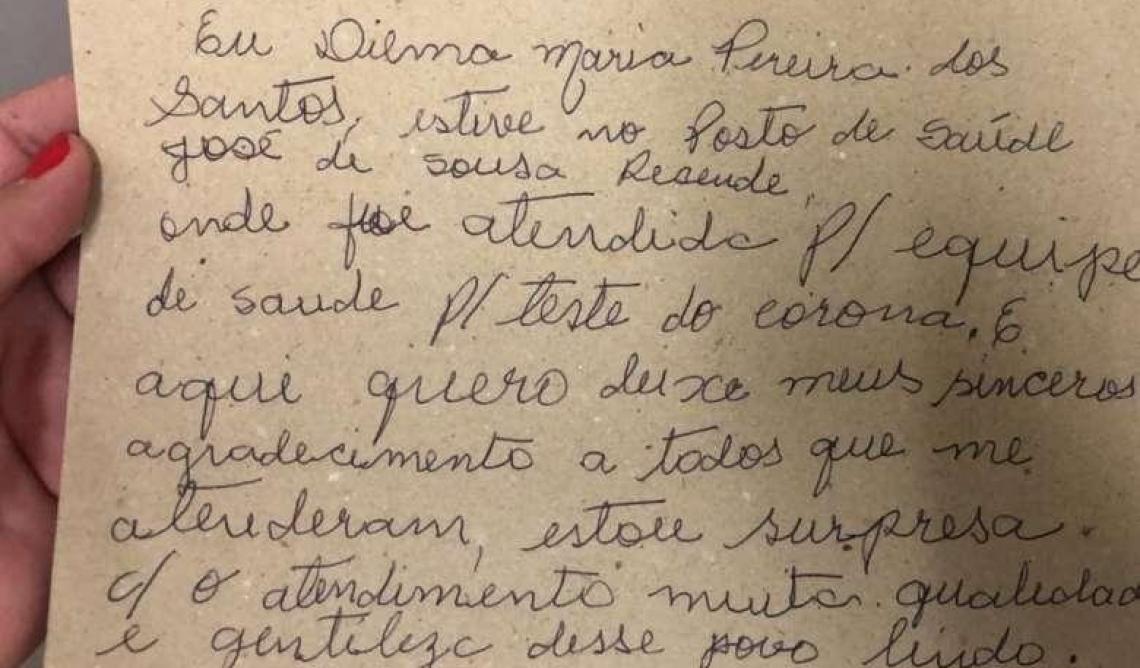 Eu Dilma Maria Pereira dos
Santos, estive no Posto de Saúde
José de Sousa Resende,
onde fui atendida p/ equipe
de saude p/ teste do corona. E
aqui quero deixe meus sinceros
agradecimento a todos que me
atenderam, estou surpresa.
c/ o atendimento muita qualidad
e gentileza desse povo lindo.